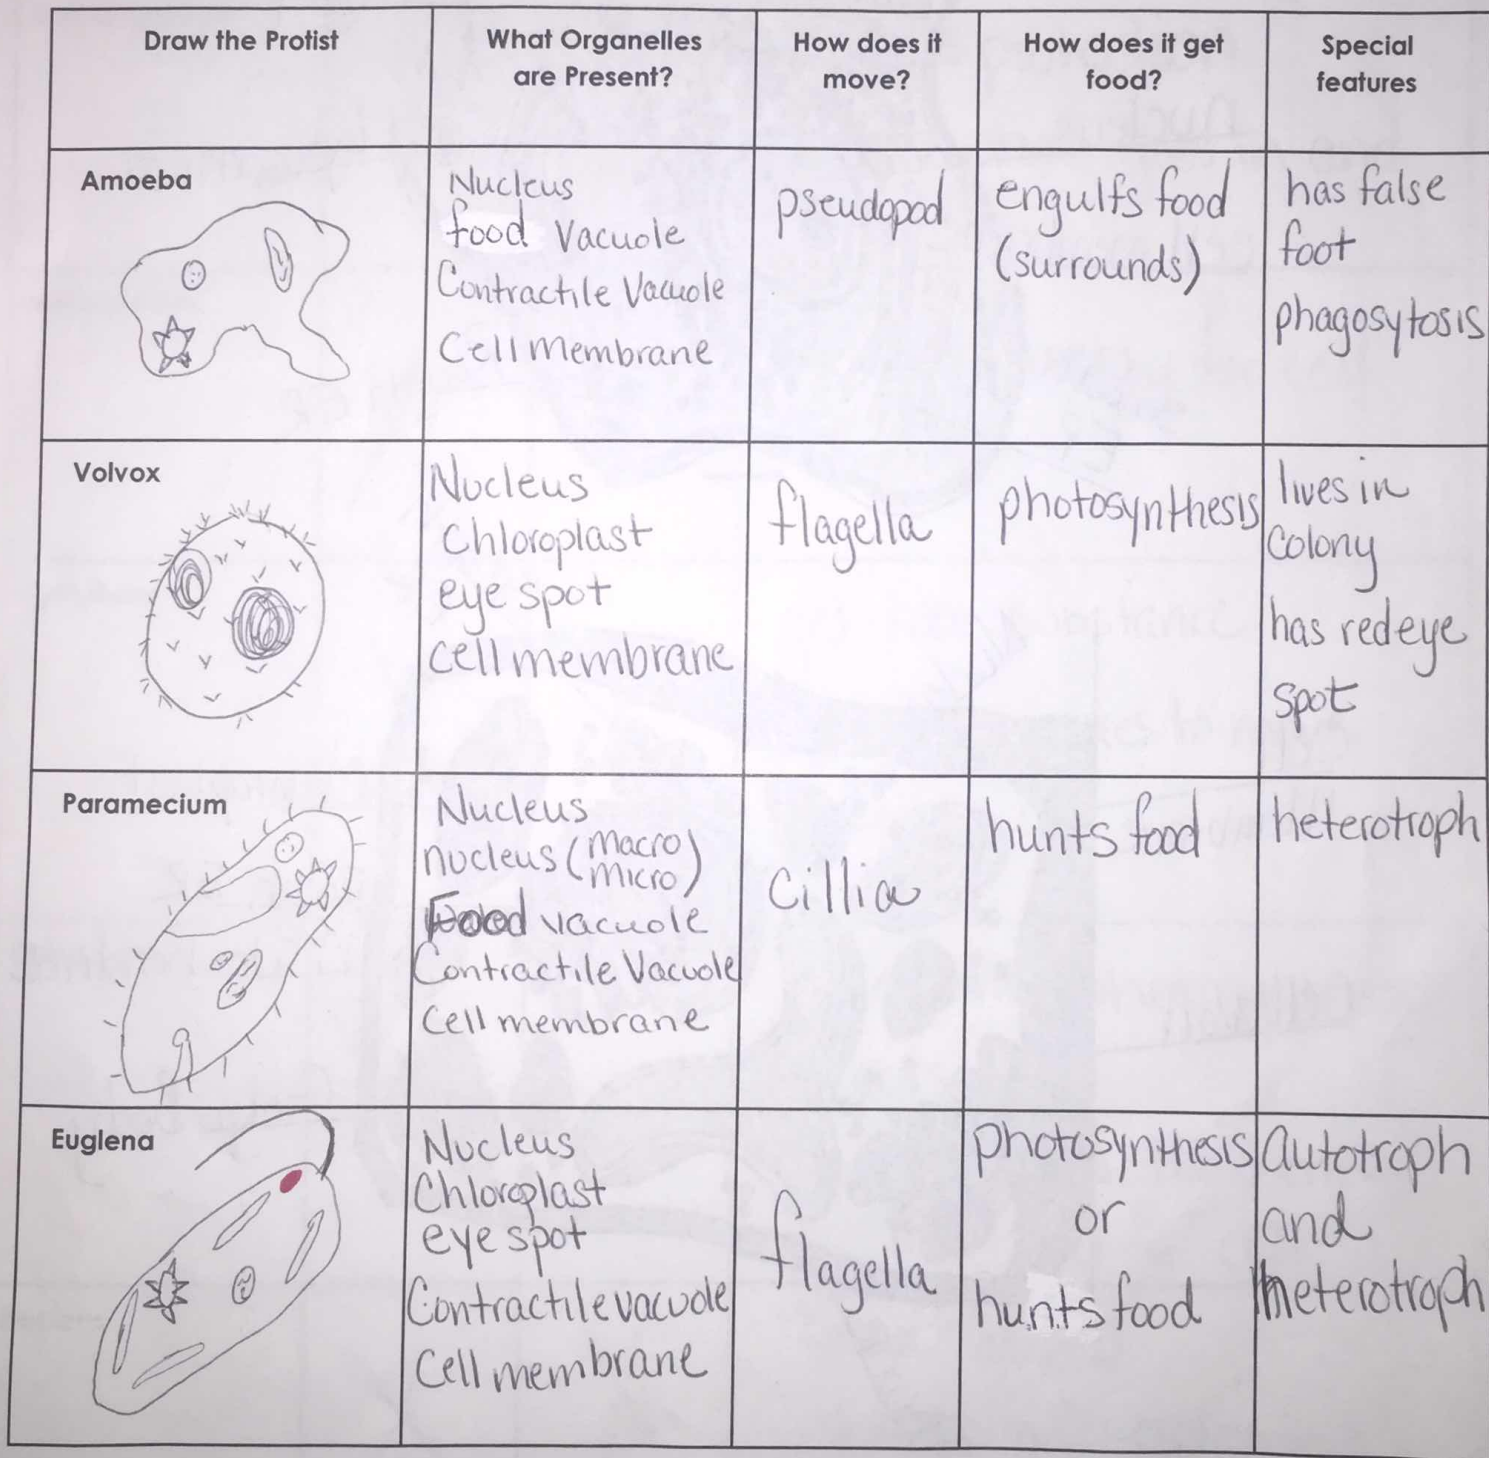 Draw the Protist
What Organelles
are Present?
How does it
move?
How does it get
food?
Special
features
Amoeba
Nucleus
food Vacuole
Contractile Vacuole
Cell Membrane
pseudopod
engulfs food
(surrounds)
has false
foot
phagosytosis
Volvox
Nucleus
Chloroplast
eye spot
cell membrane
flagella
photosynthesis
lives in
colony
has red eye
spot
Paramecium
Nucleus
nucleus (macro
micro)
Food vacuole
Contractile Vacuole
Cell membrane
cillia
hunts food
heterotroph
Euglena
Nucleus
Chloroplast
eye spot
Contractile vacuole
Cell membrane
flagella
photosynthesis
or
hunts food
autotroph
and
heterotroph